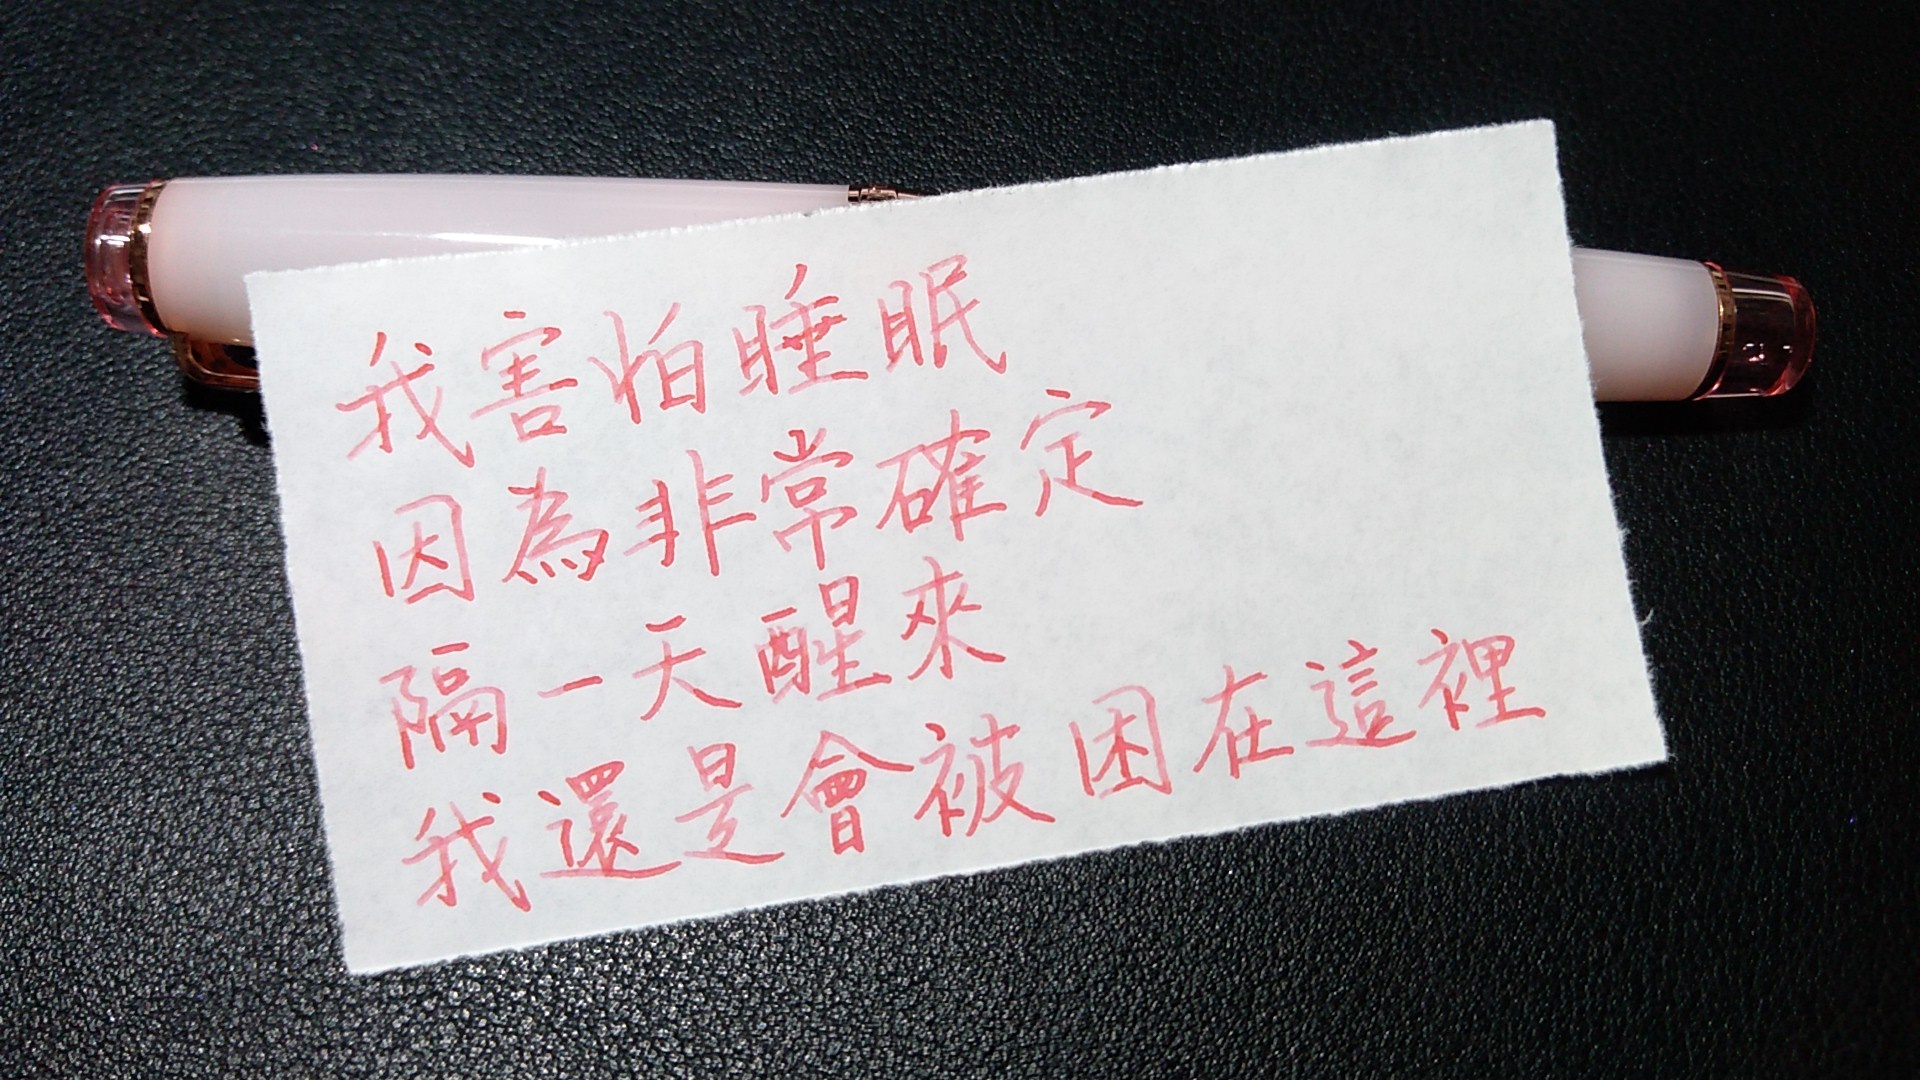 我害怕睡眠
因為非常確定
隔一天醒來
我還是會被困在這裡